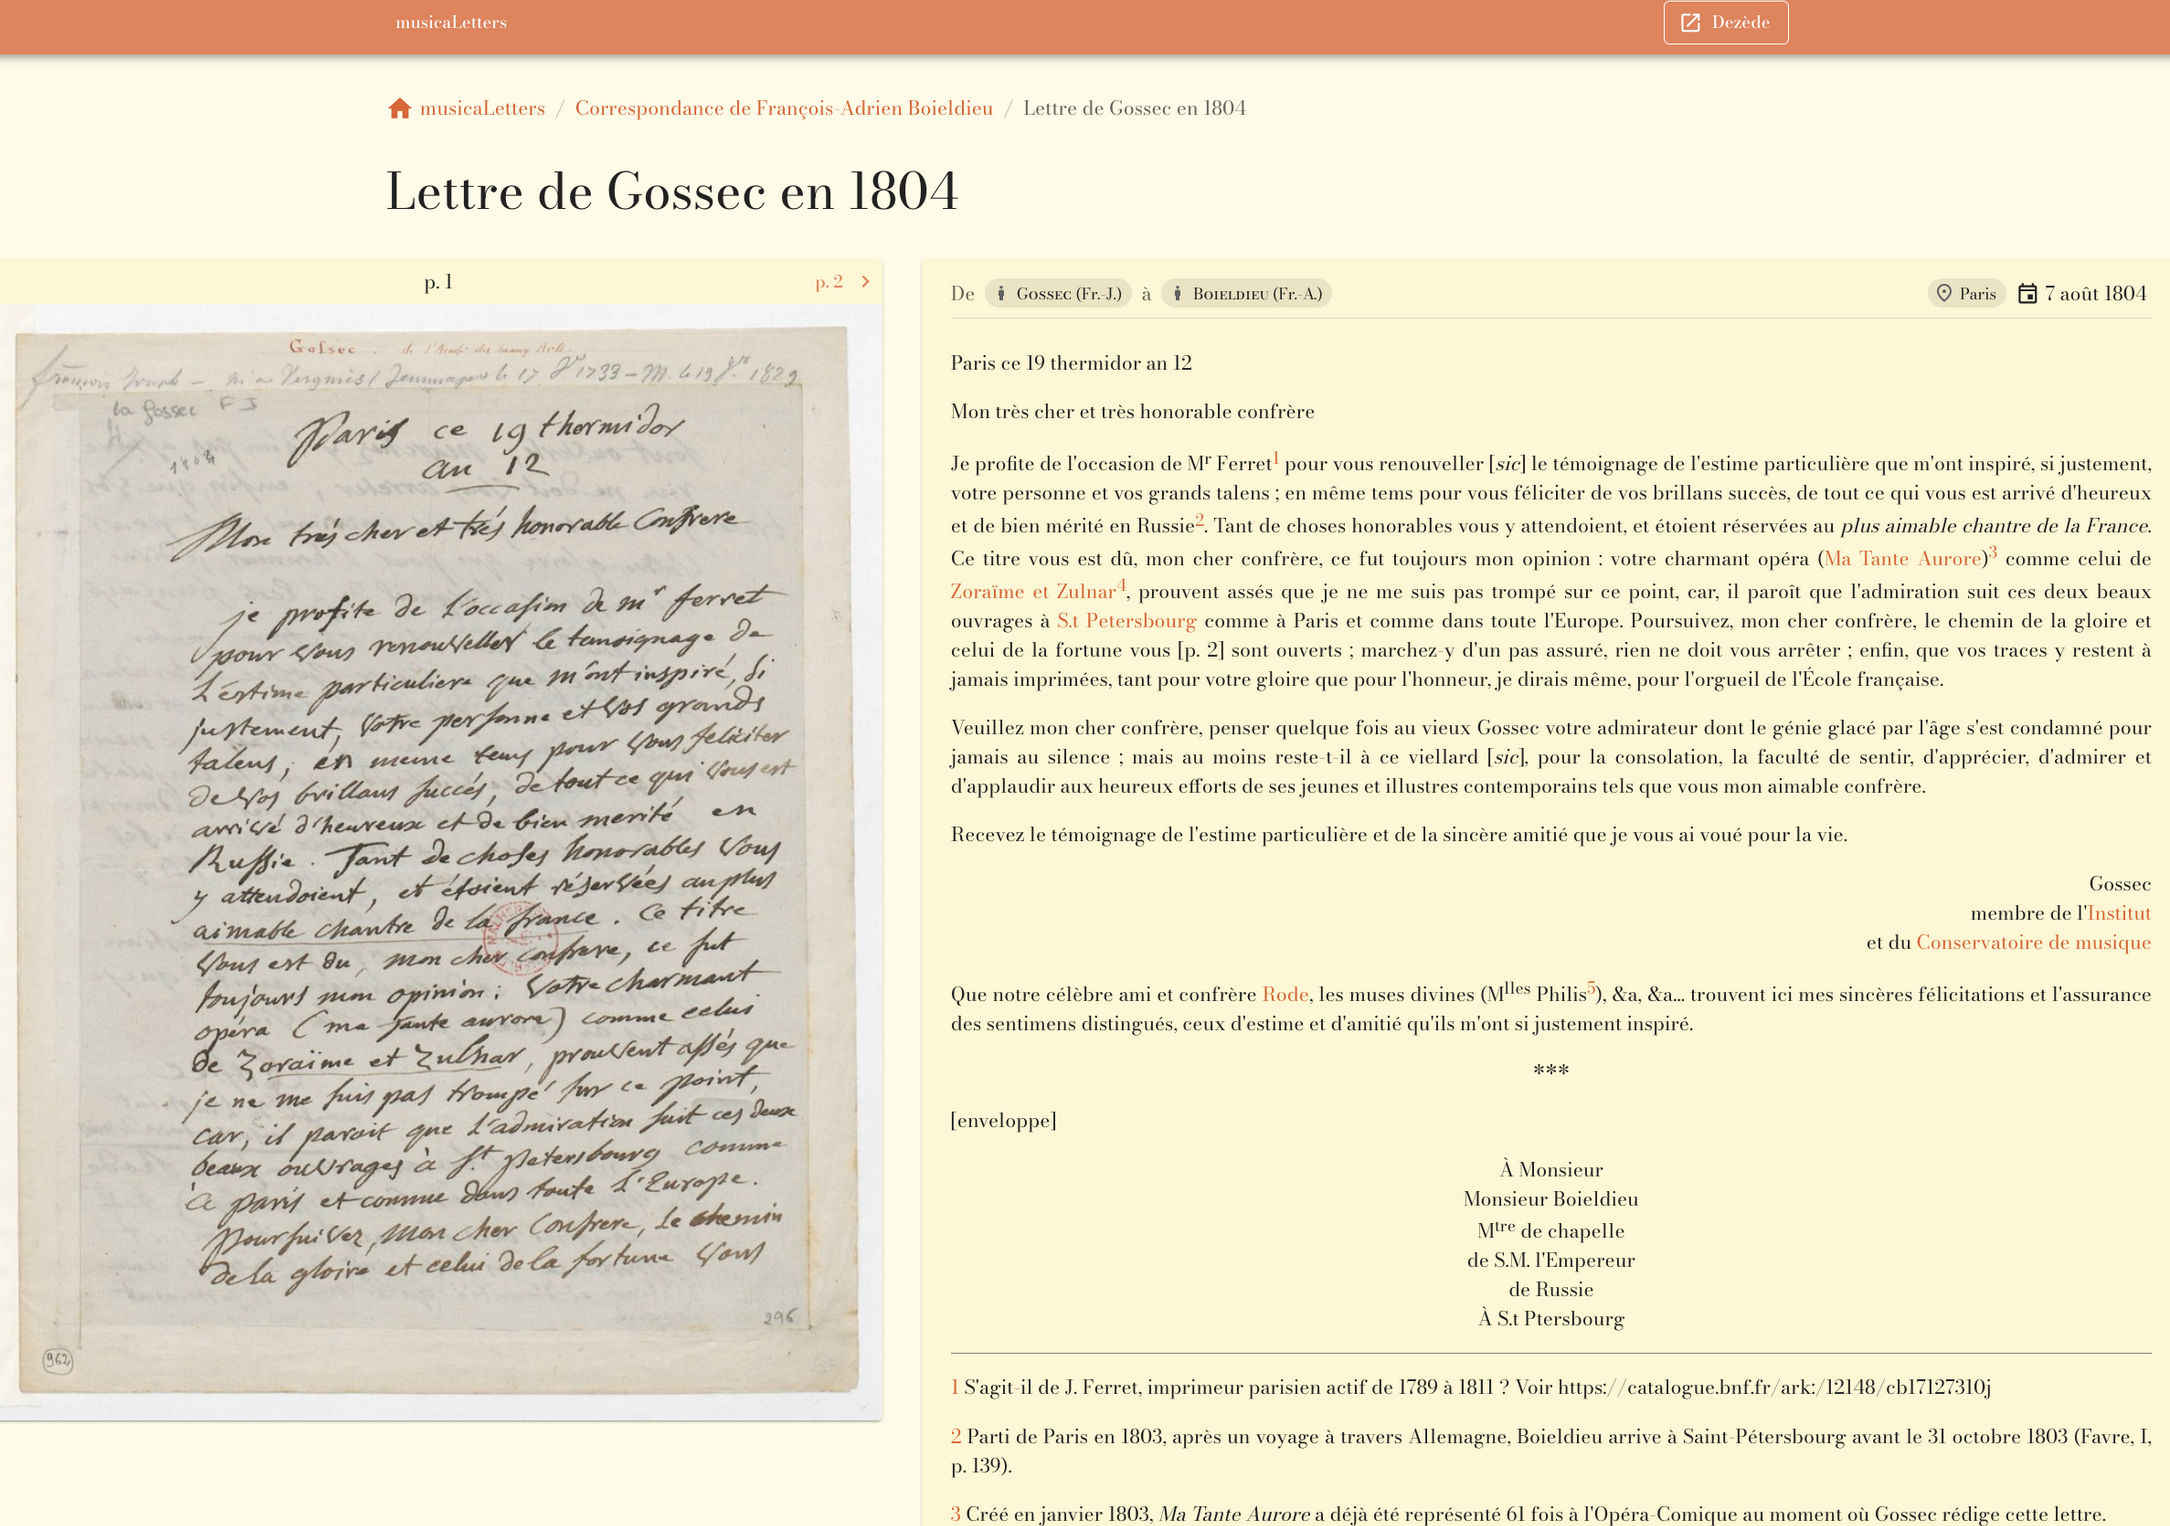 musicaLetters
Dezède
musicaLetters / Correspondance de François-Adrien Boieldieu / Lettre de Gossec en 1804
Lettre de Gossec en 1804
p. 1
p. 2
Gossec . de l'Acad. des beaux Arts.
le 17 1733 — M. le 19 1829
la Gossec F J
1804
Paris ce 19 thermidor
an 12
Mon trés cher et trés honorable Confrere
je profite de l'occasion de mr ferret
pour vous renouveller le temoignage de
l'estime particuliere que m'ont inspiré, si
justement, votre personne et vos grands
talens ; en meme tems pour vous feliciter
de vos brillans succés, de tout ce qui vous est
arrivé d'heureux et de bien merité en
Russie . Tant de choses honorables vous
y attendoient, et étoient réservées au plus
aimable chantre de la france . Ce titre
vous est du, mon cher confrere, ce fut
toujours mon opinion : votre charmant
opéra (ma tante aurore) comme celui
de Zoraïme et Zulnar, prouvent assés que
je ne me suis pas trompé sur ce point,
car, il paroit que l'admiration suit ces deux
beaux ouvrages à St. Petersbourg comme
a paris et comme dans toute l'Europe.
Poursuivez, mon cher Confrere, le chemin
de la gloire et celui de la fortune vous
296
962
De Gossec (Fr.-J.) à Boieldieu (Fr.-A.)
Paris 7 août 1804
Paris ce 19 thermidor an 12
Mon très cher et très honorable confrère
Je profite de l'occasion de Mr Ferret1 pour vous renouveller [sic] le témoignage de l'estime particulière que m'ont inspiré, si justement,
votre personne et vos grands talens ; en même tems pour vous féliciter de vos brillans succès, de tout ce qui vous est arrivé d'heureux
et de bien mérité en Russie2. Tant de choses honorables vous y attendoient, et étoient réservées au plus aimable chantre de la France.
Ce titre vous est dû, mon cher confrère, ce fut toujours mon opinion : votre charmant opéra (Ma Tante Aurore)3 comme celui de
Zoraïme et Zulnar4, prouvent assés que je ne me suis pas trompé sur ce point, car, il paroît que l'admiration suit ces deux beaux
ouvrages à S.t Petersbourg comme à Paris et comme dans toute l'Europe. Poursuivez, mon cher confrère, le chemin de la gloire et
celui de la fortune vous [p. 2] sont ouverts ; marchez-y d'un pas assuré, rien ne doit vous arrêter ; enfin, que vos traces y restent à
jamais imprimées, tant pour votre gloire que pour l'honneur, je dirais même, pour l'orgueil de l'École française.
Veuillez mon cher confrère, penser quelque fois au vieux Gossec votre admirateur dont le génie glacé par l'âge s'est condamné pour
jamais au silence ; mais au moins reste-t-il à ce viellard [sic], pour la consolation, la faculté de sentir, d'apprécier, d'admirer et
d'applaudir aux heureux efforts de ses jeunes et illustres contemporains tels que vous mon aimable confrère.
Recevez le témoignage de l'estime particulière et de la sincère amitié que je vous ai voué pour la vie.
Gossec
membre de l'Institut
et du Conservatoire de musique
Que notre célèbre ami et confrère Rode, les muses divines (Mlles Philis5), &a, &a... trouvent ici mes sincères félicitations et l'assurance
des sentimens distingués, ceux d'estime et d'amitié qu'ils m'ont si justement inspiré.
***
[enveloppe]
À Monsieur
Monsieur Boieldieu
Mtre de chapelle
de S.M. l'Empereur
de Russie
À S.t Ptersbourg
1 S'agit-il de J. Ferret, imprimeur parisien actif de 1789 à 1811 ? Voir https://catalogue.bnf.fr/ark:/12148/cb17127310j
2 Parti de Paris en 1803, après un voyage à travers Allemagne, Boieldieu arrive à Saint-Pétersbourg avant le 31 octobre 1803 (Favre, I,
p. 139).
3 Créé en janvier 1803, Ma Tante Aurore a déjà été représenté 61 fois à l'Opéra-Comique au moment où Gossec rédige cette lettre.